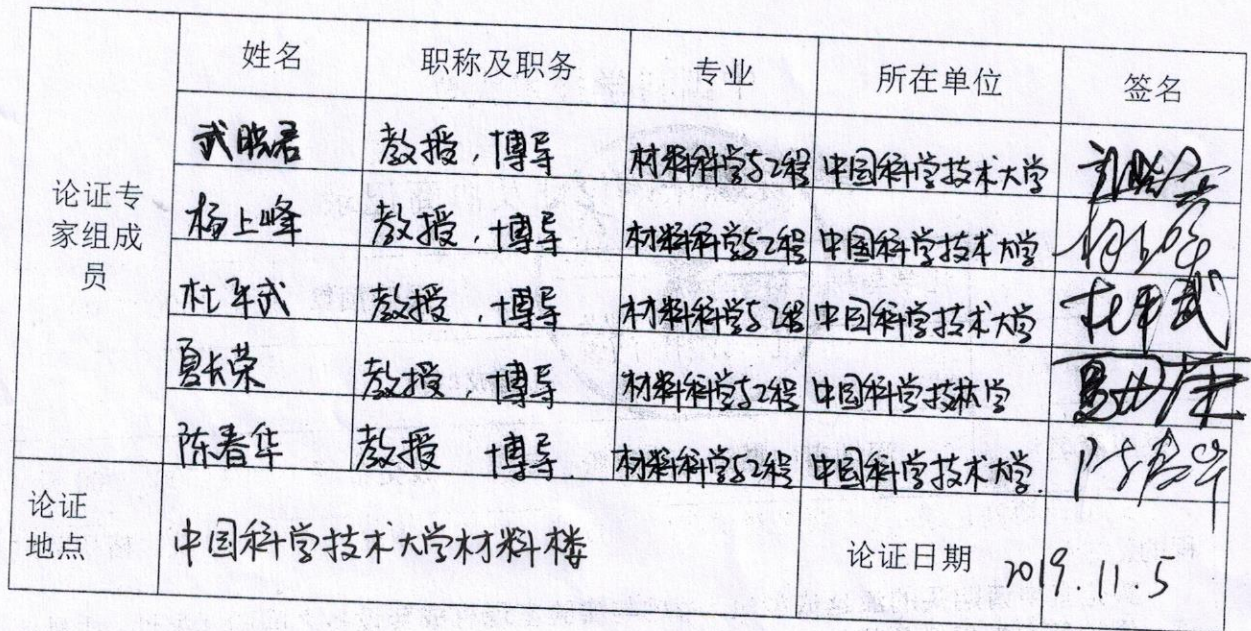 姓名 职称及职务 专业 所在单位 签名
论证专家组成员
武晓君 教授,博导 材料科学与工程 中国科学技术大学 武晓君
杨上峰 教授,博导 材料科学与工程 中国科学技术大学 杨上峰
杜平武 教授,博导 材料科学与工程 中国科学技术大学 杜平武
夏长荣 教授,博导 材料科学与工程 中国科学技术大学 夏长荣
陈春华 教授 博导 材料科学与工程 中国科学技术大学. 陈春华
论证地点 中国科学技术大学材料楼 论证日期 2019.11.5